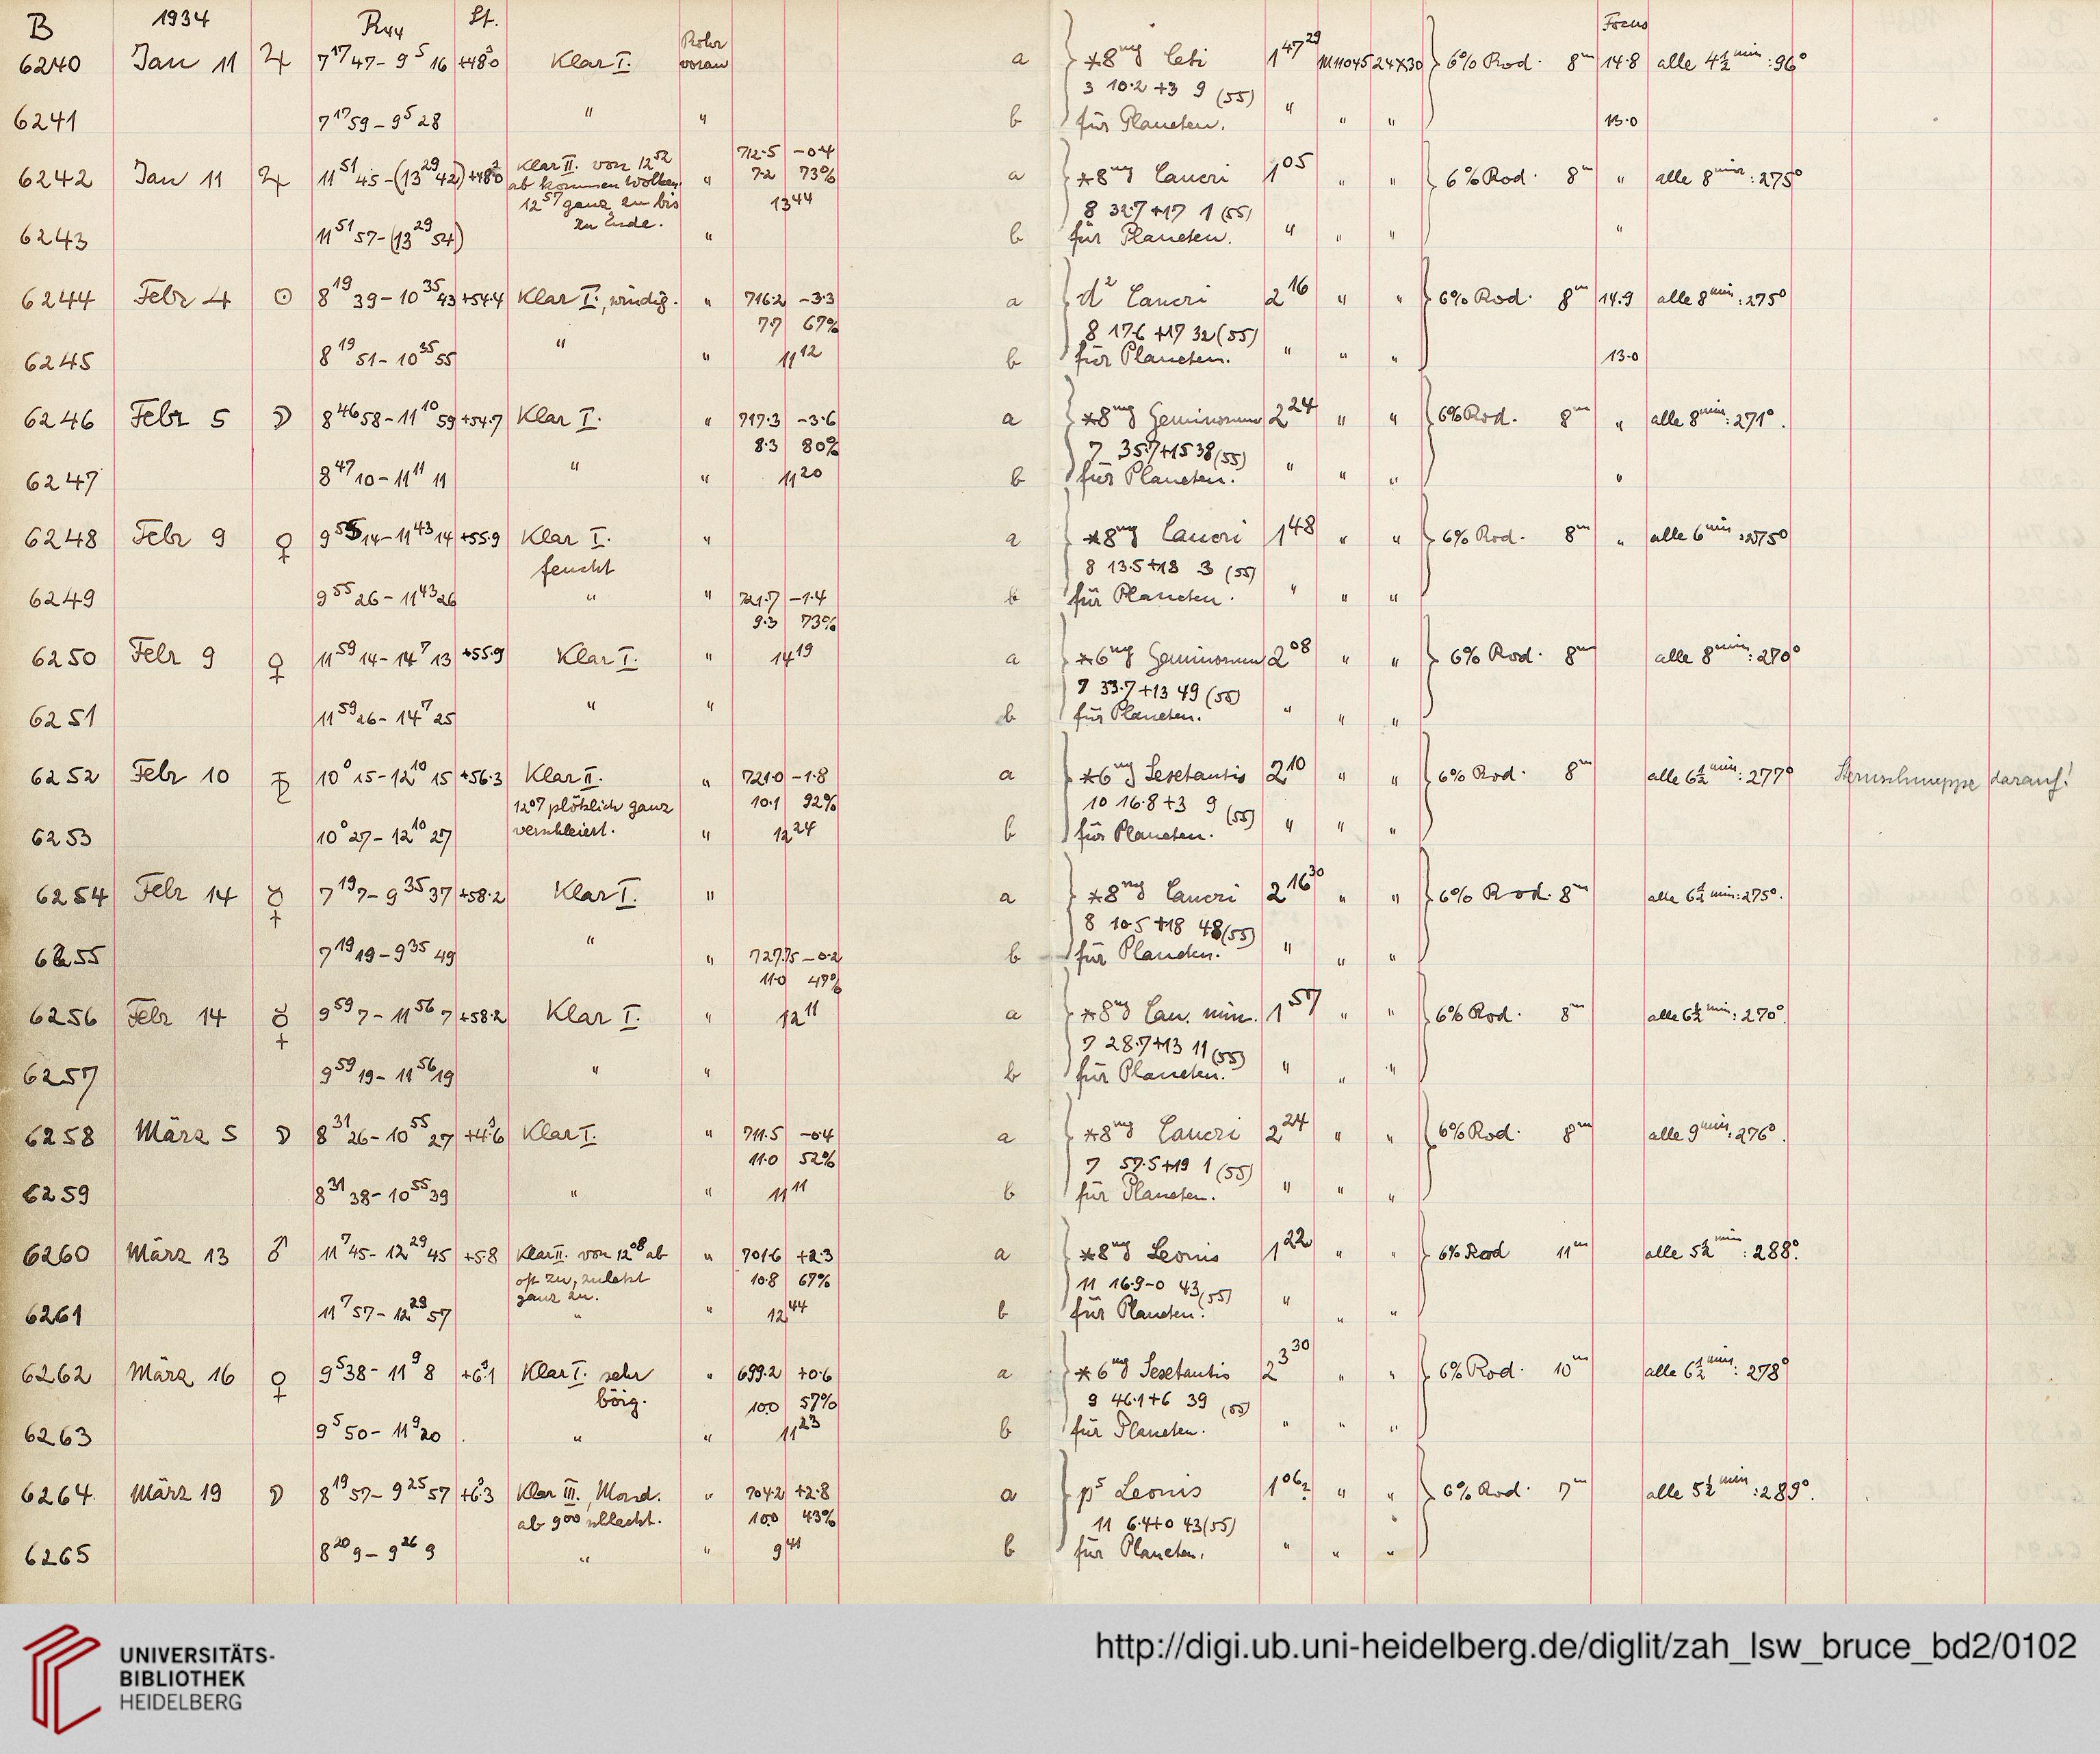 B 1934 R44 St. Focus
6240 Jan 11 ♃ 7 17 47 - 9 5 16 +48.0 Klar I. Rohr voran a *8 mg Ceti 1 47 29 M11045 24×30 6% Rod. 8m 14.8 alle 4½ min : 96°
3 10.2 +3 9 (55)
6241 7 17 59 - 9 5 28 " " b für Planeten. " " " 13.0
6242 Jan 11 ♃ 11 51 45 - (13 29 42) +48.0 Klar II. von 12 52 " 712.5 -0.4 a *8 mg Cancri 1 05 " " 6% Rod. 8m " alle 8 min : 275°
ab kommen Wolken. 7.2 73%
12 57 ganz zu bis 13 44 8 32.7 +17 1 (55)
zu Ende.
6243 11 51 57 - (13 29 54) " b für Planeten. " " " "
6244 Febr 4 ☉ 8 19 39 - 10 35 43 +54.4 Klar I., windig. " 716.2 -3.3 a d² Cancri 2 16 " " 6% Rod. 8m 14.9 alle 8 min : 275°
7.7 67% 8 17.6 +17 32 (55)
6245 8 19 51 - 10 35 55 " " 11 12 b für Planeten. " " " 13.0
6246 Febr 5 ☽ 8 46 58 - 11 10 59 +54.7 Klar I. " 717.3 -3.6 a *8 mg Geminorum 2 24 " " 6% Rod. 8m " alle 8 min : 271°.
8.3 80% 7 35.7 +15 38 (55)
6247 8 47 10 - 11 11 11 " " 11 20 b für Planeten. " " " "
6248 Febr 9 ♀ 9 55 14 - 11 43 14 +55.9 Klar I. " a *8 mg Cancri 1 48 " " 6% Rod. 8m " alle 6 min : 275°
feucht 8 13.5 +18 3 (55)
6249 9 55 26 - 11 43 26 " " 721.7 -1.4 b für Planeten. " " "
9.3 73%
6250 Febr 9 ♀ 11 59 14 - 14 7 13 +55.9 Klar I. " 14 19 a *6 mg Geminorum 2 08 " " 6% Rod. 8m alle 8 min : 270°
7 33.7 +13 49 (55)
6251 11 59 26 - 14 7 25 " " b für Planeten. " " "
6252 Febr 10 10 0 15 - 12 10 15 +56.3 Klar II. " 721.0 -1.8 a *6 mg Sextantis 2 10 " " 6% Rod. 8m alle 6½ min : 277° Sternschnuppe darauf!
12 07 plötzlich ganz 10.1 92% 10 16.8 +3 9 (55)
verschleiert.
6253 10 0 27 - 12 10 27 " 12 24 b für Planeten. " " "
6254 Febr 14 ☿ 7 19 7 - 9 35 37 +58.2 Klar I. " a *8 mg Cancri 2 16 30 " " 6% Rod. 8m alle 6½ min : 275°.
8 10.5 +18 48 (55)
6255 7 19 19 - 9 35 49 " " 727.75 -0.2 b für Planeten. " " "
11.0 47%
6256 Febr 14 ☿ 9 59 7 - 11 56 7 +58.2 Klar I. " 12 11 a *8 mg Can. min. 1 57 " " 6% Rod. 8m alle 6½ min : 270°.
7 28.7 +13 11 (55)
6257 9 59 19 - 11 56 19 " " b für Planeten. " " "
6258 März 5 ☽ 8 31 26 - 10 55 27 +4.6 Klar I. " 711.5 -0.4 a *8 mg Cancri 2 24 " " 6% Rod. 8m alle 9 min : 276°.
11.0 52% 7 57.5 +19 1 (55)
6259 8 31 38 - 10 55 39 " " 11 11 b für Planeten. " " "
6260 März 13 ♂ 11 7 45 - 12 29 45 +5.8 Klar II. von 12 08 ab " 701.6 +2.3 a *8 mg Leonis 1 22 " " 6% Rod 11m alle 5½ min : 288°.
oft zu, zuletzt 10.8 67% 11 16.9 -0 43 (55)
ganz zu.
6261 11 7 57 - 12 29 57 " " 12 44 b für Planeten. " " "
6262 März 16 ♀ 9 5 38 - 11 9 8 +6.1 Klar I. sehr " 699.2 +0.6 a *6 mg Sextantis 2 3 30 " " 6% Rod. 10m alle 6½ min : 278°
böig. 10.0 57% 9 46.1 +6 39 (55)
6263 9 5 50 - 11 9 20 " " 11 23 b für Planeten. " " "
6264 März 19 ☽ 8 19 57 - 9 25 57 +6.3 Klar III., Mond. " 704.2 +2.8 a p⁵ Leonis 1 06 " " 6% Rod. 7m alle 5½ min : 289°.
ab 9 00 schlecht. 10.0 43% 11 6.4 +0 43 (55)
6265 8 20 9 - 9 26 9 " " 9 41 b für Planeten. " " "
UNIVERSITÄTS-
BIBLIOTHEK
HEIDELBERG
http://digi.ub.uni-heidelberg.de/diglit/zah_lsw_bruce_bd2/0102